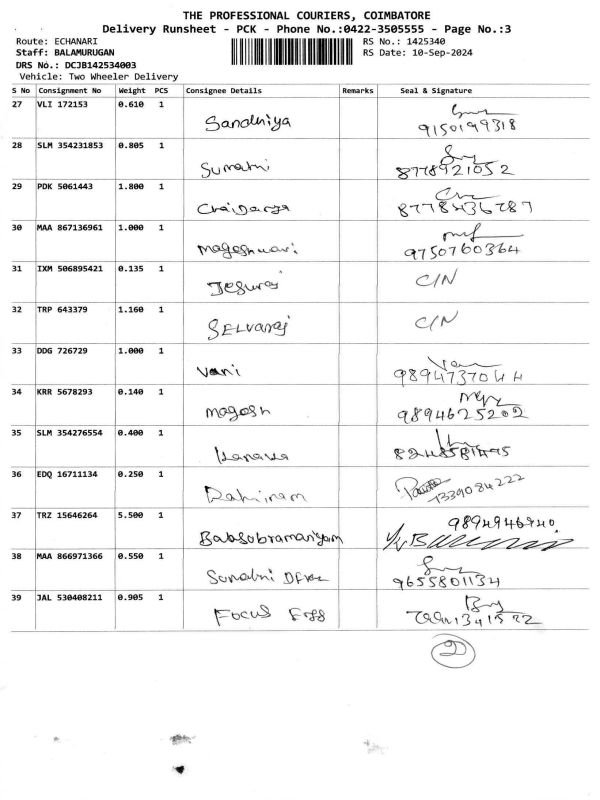 THE PROFESSIONAL COURIERS, COIMBATORE
Delivery Runsheet - PCK - Phone No.:0422-3505555 - Page No.:3
Route: ECHANARI RS No.: 1425340
Staff: BALAMURUGAN RS Date: 10-Sep-2024
DRS No.: DCJB142534003
Vehicle: Two Wheeler Delivery
S No Consignment No Weight PCS Consignee Details Remarks Seal & Signature
27 VLI 172153 0.610 1
Sandhiya 9150199318
28 SLM 354231853 0.805 1
Sumathi 8778921052
29 PDK 5061443 1.800 1
8778436787
30 MAA 867136961 1.000 1
Mageshwari 9750760364
31 IXM 506895421 0.135 1
Jesuraj C/N
32 TRP 643379 1.160 1
SELvaraj C/N
33 DDG 726729 1.000 1
Vani 9894737044
34 KRR 5678293 0.140 1
Magesh 9894625202
35 SLM 354276554 0.400 1
Kanaka
36 EDQ 16711134 0.250 1
7339084222
37 TRZ 15646264 5.500 1
9894946940.
Balasubramaniyam
38 MAA 866971366 0.550 1
9655801134
39 JAL 530408211 0.905 1
Focus
2